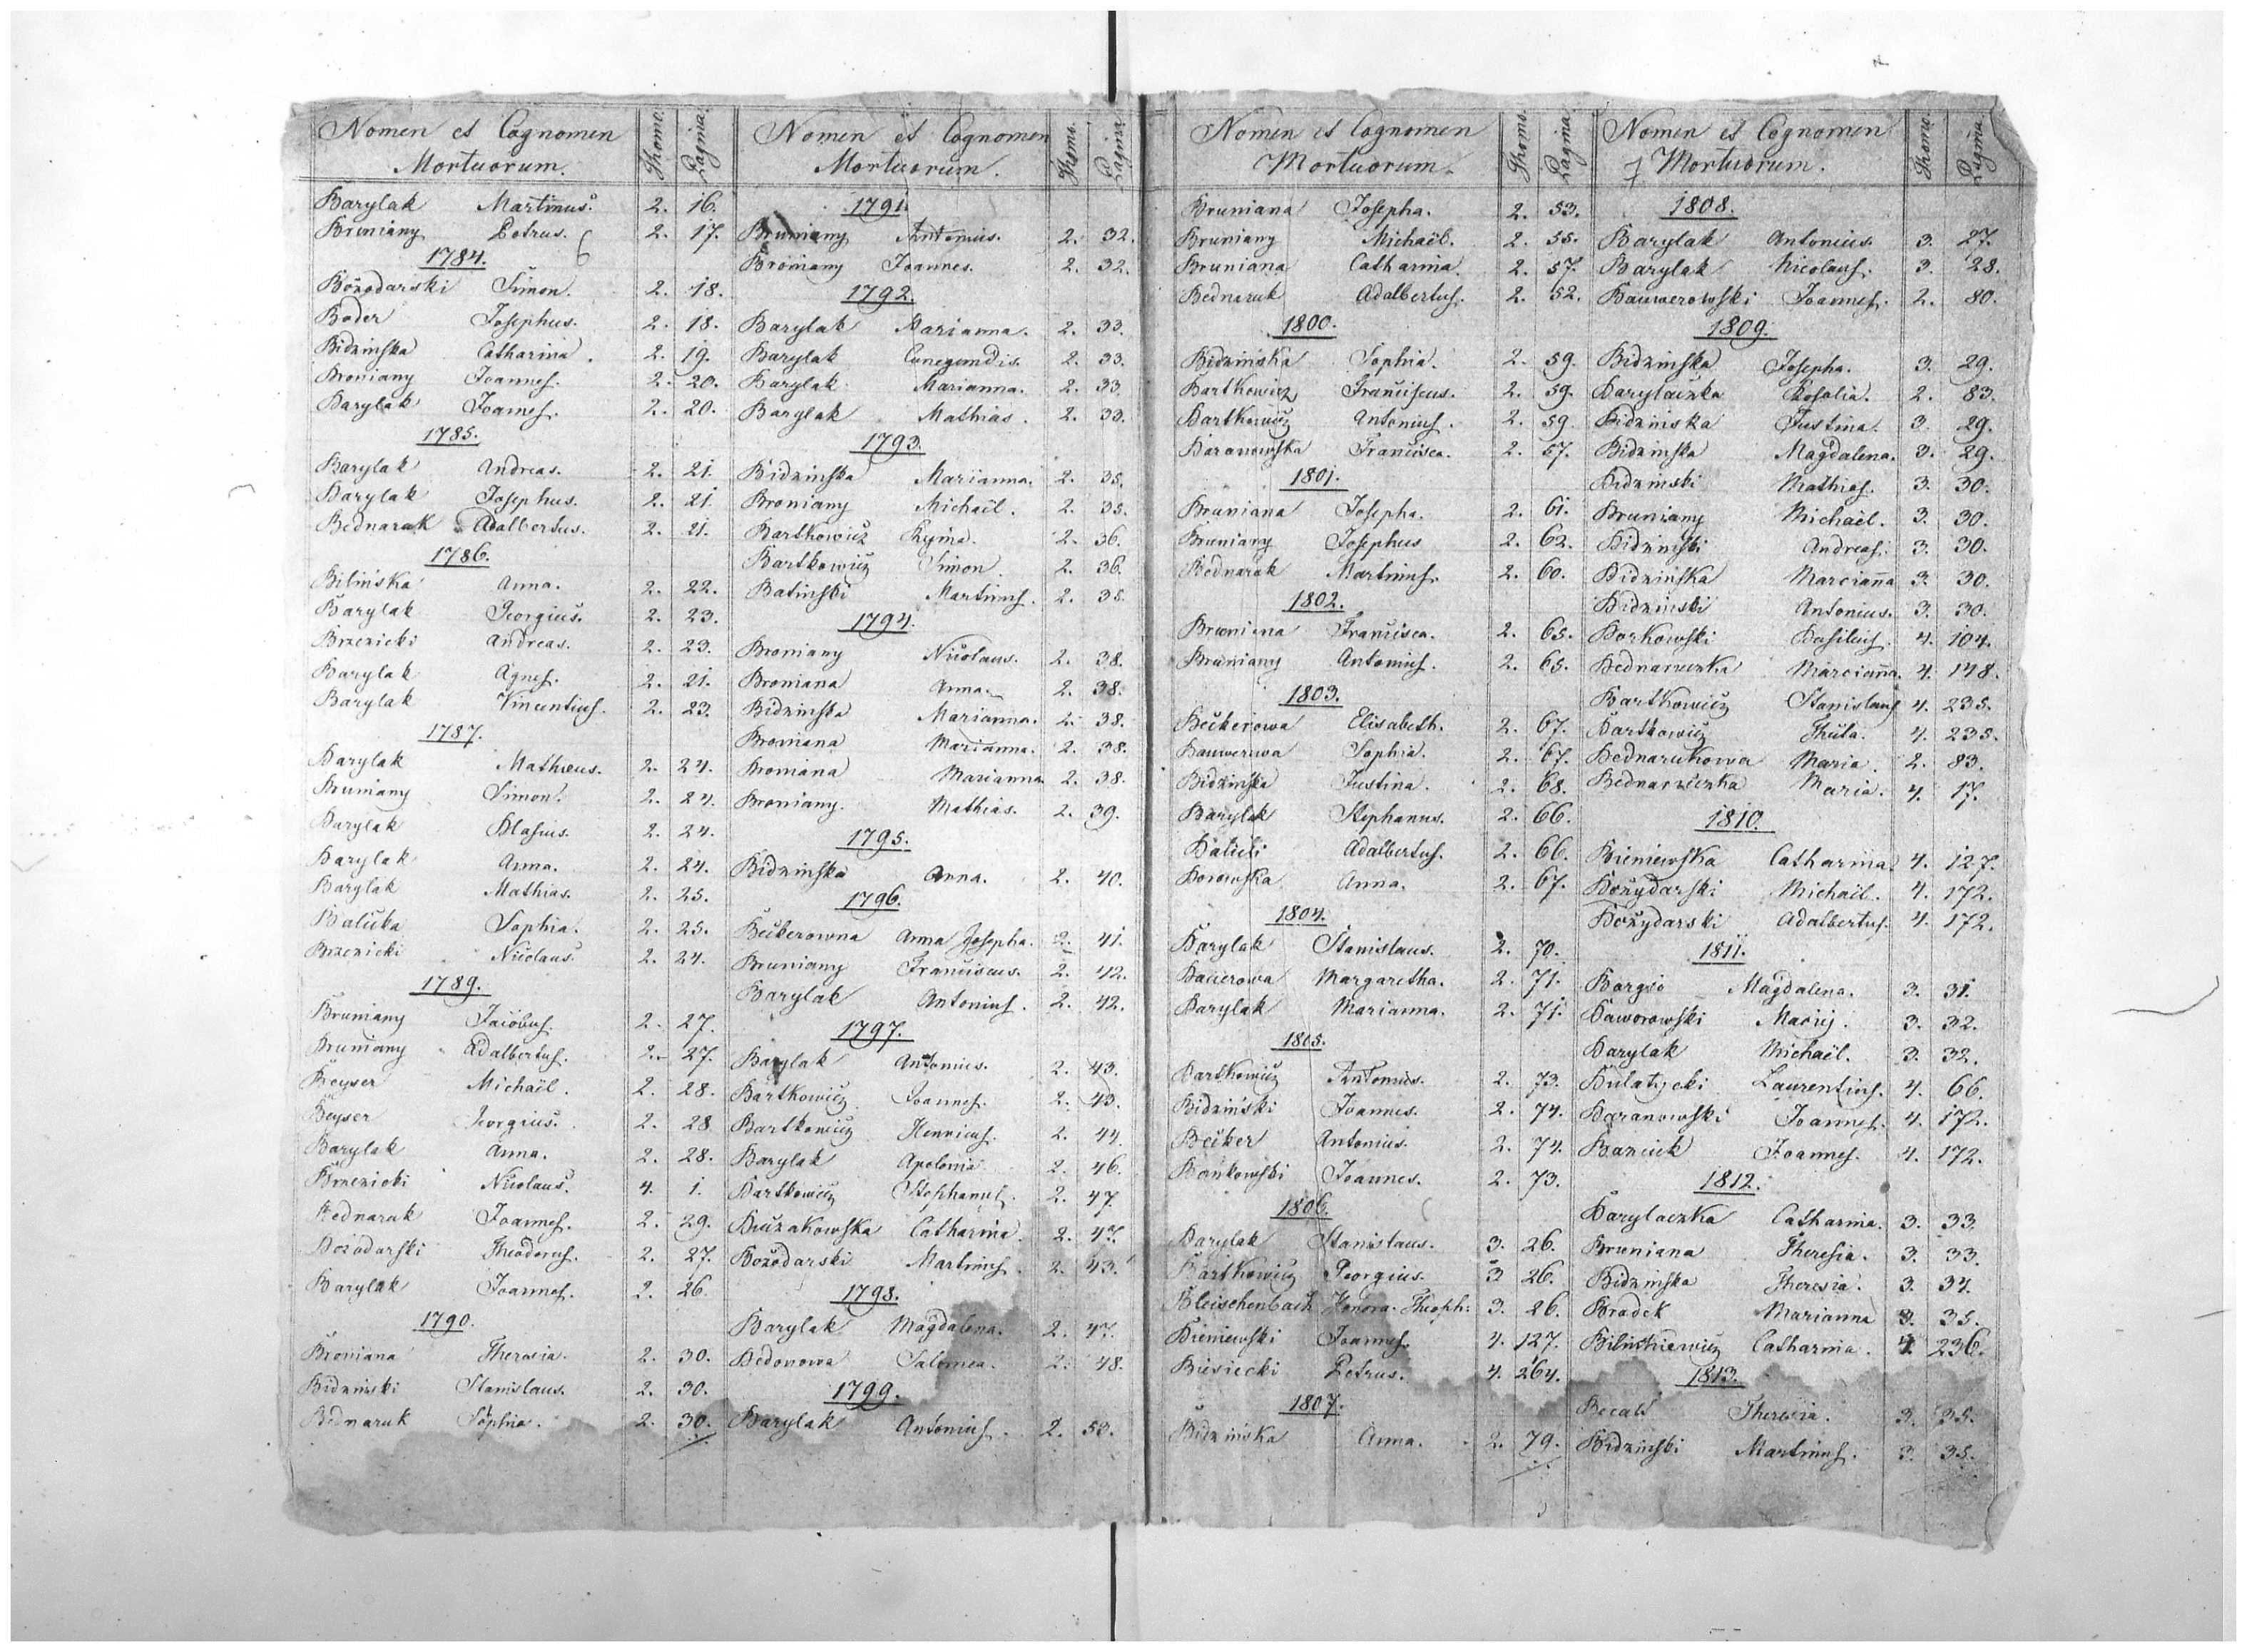 Nomen et Cognomen Mortuorum. Thomo. Pagina.
Barylak Martinus. 2. 16.
Broniany Petrus. 2. 17.
1784.
Bożodarski Simon. 2. 18.
Boder Josephus. 2. 18.
Bidzinska Catharina. 2. 19.
Broniany Joannes. 2. 20.
Barylak Joannes. 2. 20.
1785.
Barylak Andreas. 2. 21.
Barylak Josephus. 2. 21.
Bednarak Adalbertus. 2. 21.
1786.
Bilińska Anna. 2. 22.
Barylak Georgius. 2. 23.
Brzezicki Andreas. 2. 23.
Barylak Agnes. 2. 21.
Barylak Vincentius. 2. 23.
1787.
Barylak Matheus. 2. 24.
Bruniany Simon. 2. 24.
Barylak Blasius. 2. 24.
Barylak Anna. 2. 24.
Barylak Mathias. 2. 25.
Balicka Sophia. 2. 25.
Brzezicki Nicolaus. 2. 24.
1789.
Bruniany Jacobus. 2. 27.
Bruniany Adalbertus. 2. 27.
Beyser Michaël. 2. 28.
Beyser Georgius. 2. 28.
Barylak Anna. 2. 28.
Brzezicki Nicolaus. 4. 1.
Bednaruk Joannes. 2. 29.
Bożodarski Theodorus. 2. 27.
Barylak Joannes. 2. 26.
1790.
Broniana Theresia. 2. 30.
Bidzinski Stanislaus. 2. 30.
Bednaruk Sophia. 2. 30.
Nomen et Cognomen Mortuorum. Thomo. Pagina
1791.
Bruniany Antonius. 2. 32.
Broniany Joannes. 2. 32.
1792.
Barylak Marianna. 2. 33.
Barylak Cunegundis. 2. 33.
Barylak Marianna. 2. 33.
Barylak Mathias. 2. 33.
1793.
Bidzinska Marianna. 2. 35.
Broniany Michaël. 2. 35.
Bartkowicz 2. 36.
Bartkowicz Simon. 2. 36.
Batinski Martinus. 2. 35.
1794.
Broniany Nicolaus. 2. 38.
Broniana Anna. 2. 38.
Bidzinska Marianna. 2. 38.
Broniana Marianna. 2. 38.
Broniana Marianna. 2. 38.
Broniany. Mathias. 2. 39.
1795.
Bidzinska Anna. 2. 40.
1796.
Beckerowna Anna Josepha. 2. 41.
Bruniany Franciscus. 2. 42.
Barylak Antonius. 2. 42.
1797.
Barylak Antonius. 2. 43.
Bartkowicz Joannes. 2. 43.
Bartkowicz Henricus. 2. 44.
Barylak Apolonia. 2. 46.
Bartkowicz Stephanus. 2. 47.
Buzakowska Catharina. 2. 47.
Bożodarski Martinus. 2. 43.
1798.
Barylak Magdalena. 2. 47.
Bedonowa Salomea. 2. 48.
1799.
Barylak Antonius. 2. 53.
Nomen et Cognomen Mortuorum. Thomo. Pagina
Bruniana Josepha. 2. 53.
Bruniany Michaël. 2. 55.
Bruniana Catharina. 2. 57.
Bednaruk Adalbertus. 2. 52.
1800.
Bidzińska Sophia. 2. 59.
Bartkowicz Franciscus. 2. 59.
Bartkowicz Antonius. 2. 59.
Baranowska Francisca. 2. 57.
1801.
Bruniana Josepha. 2. 61.
Bruniany Josephus 2. 62.
Bednarak Martinus. 2. 60.
1802.
Bruniana Francisca. 2. 65.
Bruniany Antonius. 2. 65.
1803.
Beckerowa Elisabeth. 2. 67.
Bauwerowa Sophia. 2. 67.
Bidzinska Justina. 2. 68.
Barylak Stephanus. 2. 66.
Balicki Adalbertus. 2. 66.
Borowska Anna. 2. 67.
1804.
Barylak Stanislaus. 2. 70.
Bauerowa Margaretha. 2. 71.
Barylak Marianna. 2. 71.
1805.
Bartkowicz Antonius. 2. 73.
Bidziński Joannes. 2. 74.
Becker Antonius. 2. 74.
Bońkowski Joannes. 2. 73.
1806.
Barylak Stanislaus. 3. 26.
Bartkowicz Georgius. 3 26.
Bleischenbach Honora. Theoph: 3. 26.
Bieniewski Joannes. 4. 127.
Biesiecki Petrus. 4. 264.
1807.
Bidzinska Anna. 2. 79.
Nomen et Cognomen Mortuorum. Thomo. Pagina
1808.
Barylak Antonius. 3. 27.
Barylak Nicolaus. 3. 28.
Bauwerowski Joannes. 2. 80.
1809.
Bidzinska Josepha. 3. 29.
Barylaczka Rosalia. 2. 83.
Bidzinska Justina. 3. 29.
Bidzinska Magdalena. 3. 29.
Bidzinski Mathias. 3. 30.
Bruniany Michaël. 3. 30.
Bidzinski Andreas. 3. 30.
Bidzińska Marcianna 3. 30.
Bidzinski Antonius. 3. 30.
Borkowski Basilius. 4. 104.
Bednaruczka Marcianna. 4. 148.
Bartkowicz Stanislaus 4. 235.
Bartkowicz Thecla. 4. 235.
Bednarukowa Maria. 2. 83.
Bednaruczka Maria. 4. 17.
1810.
Bieniewska Catharina. 4. 127.
Bożydarski Michaël. 4. 172.
Bożydarski Adalbertus. 4. 172.
1811.
Borgió Magdalena. 3. 31.
Baworowski Maciej. 3. 32.
Barylak Michaël. 3. 32.
Bulatycki Laurentius. 4. 66.
Baranowski Joannes. 4. 172.
Baziuk Joannes. 4. 172.
1812.
Barylaczka Catharina. 3. 33.
Bruniana Theresia. 3. 33.
Bidzinska Theresia. 3. 34.
Bradek Marianna 3. 35.
Catharina. 4. 236.
1813.
Theresia. 3. 35.
Bidzinski Martinus. 3. 35.